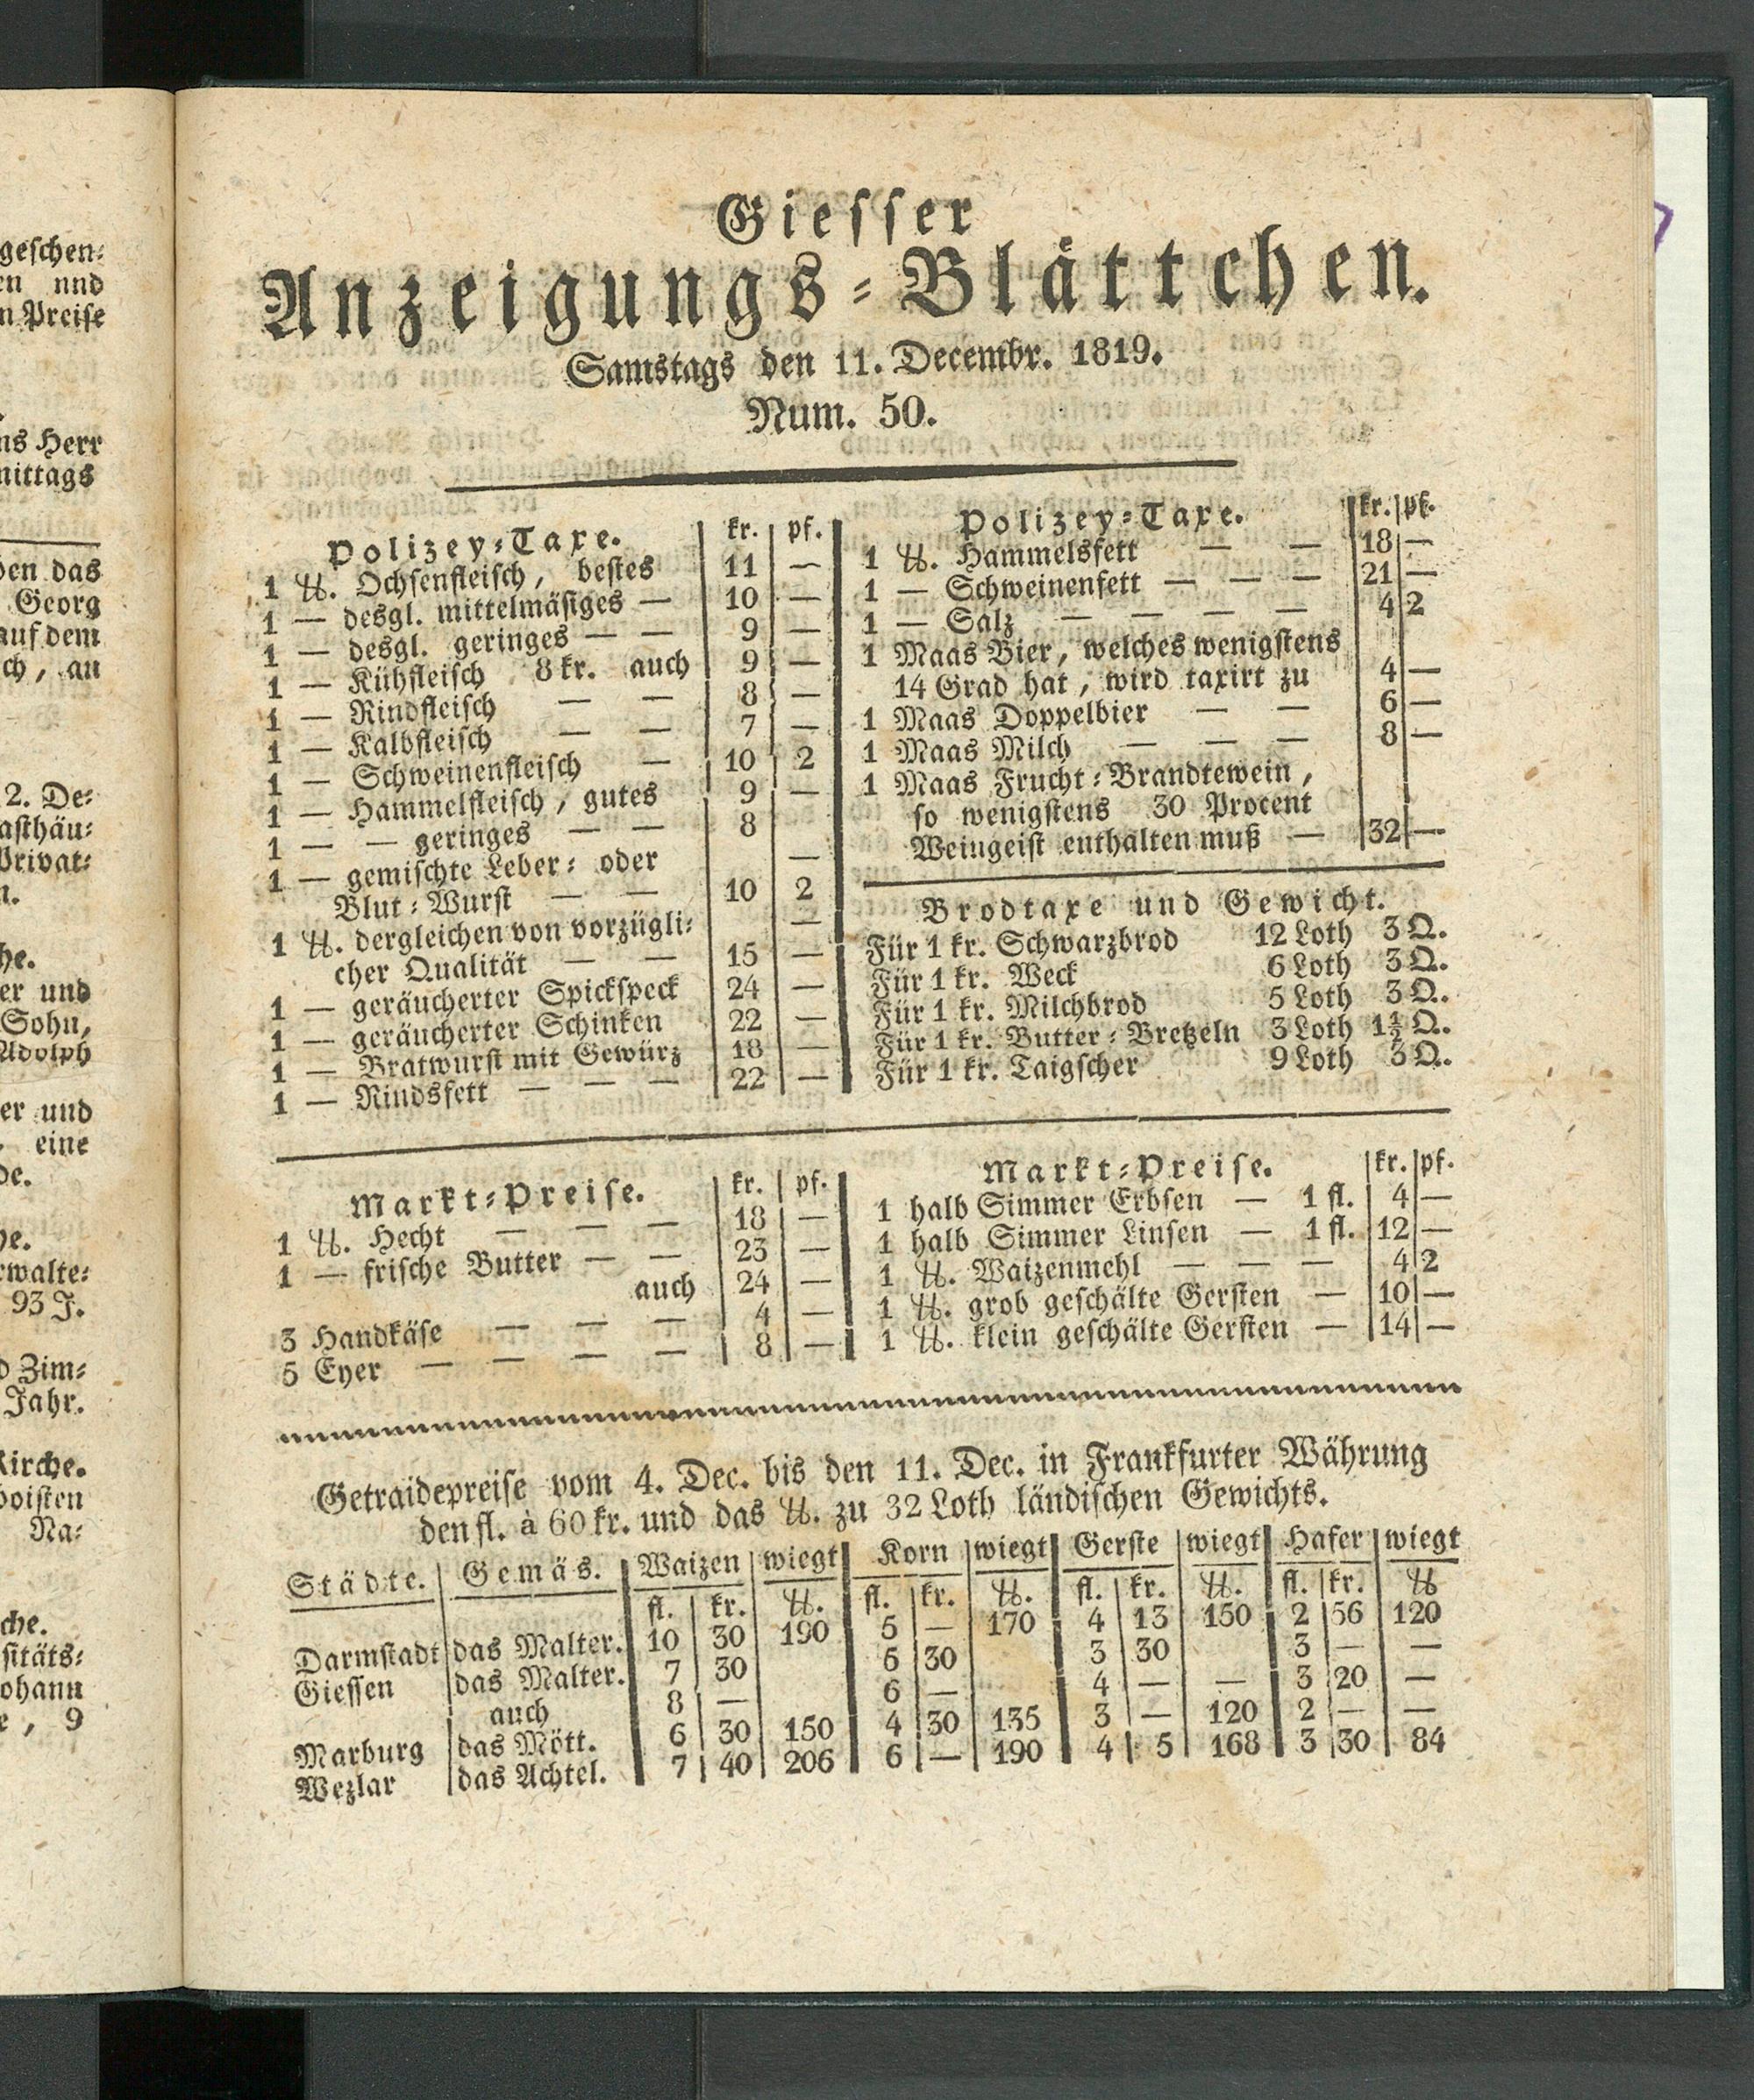 geschen⸗
en und
n Preise
ns Herr
mittags
den das
Georg
auf dem
ch, an
2. De⸗
asthäu⸗
Privat⸗
n.
he.
er und
Sohn,
Adolph
er und
eine
de.
he.
rwalte⸗
93 J.
d Zim⸗
Jahr.
Kirche.
boisten
Na⸗
che.
sitäts⸗
ohann
e, 9
Giesser
Anzeigungs⸗Blättchen.
Samstags den 11. Decembr. 1819.
Num. 50.
Polizey⸗Taxe. kr. pf.
1 ℔. Ochsenfleisch, bestes 11 —
1 — desgl. mittelmäsiges — 10 —
1 — desgl. geringes — — 9 —
1 — Kühfleisch 8 kr. auch 9 —
1 — Rindfleisch — — 8 —
1 — Kalbfleisch — — 7 —
1 — Schweinenfleisch — 10 2
1 — Hammelfleisch, gutes 9 —
1 — — geringes — — 8 —
1 — gemischte Leber⸗ oder
Blut⸗Wurst — — 10 2
1 ℔. dergleichen von vorzügli⸗ —
cher Qualität — — 15 —
1 — geräucherter Spickspeck 24 —
1 — geräucherter Schinken 22 —
1 — Bratwurst mit Gewürz 18 —
1 — Rindsfett — — — 22 —
Polizey⸗Taxe. kr. pf.
1 ℔. Hammelsfett — — 18 —
1 — Schweinenfett — — — 21 —
1 — Salz — — — — 4 2
1 Maas Bier, welches wenigstens
14 Grad hat, wird taxirt zu 4 —
1 Maas Doppelbier — — 6 —
1 Maas Milch — — — 8 —
1 Maas Frucht⸗Brandtewein,
so wenigstens 30 Procent
Weingeist enthalten muß — 32 —
Brodtaxe und Gewicht.
Für 1 kr. Schwarzbrod 12 Loth 3 Q.
Für 1 kr. Weck 6 Loth 3 Q.
Für 1 kr. Milchbrod 5 Loth 3 Q.
Für 1 kr. Butter⸗Bretzeln 3 Loth 1½ Q.
Für 1 kr. Taigscher 9 Loth 3 Q.
Markt⸗Preise. kr. pf.
1 ℔. Hecht — — — 18 —
1 — frische Butter — — 23 —
auch 24 —
3 Handkäse — — — 4 —
5 Eyer — — — — 8 —
Markt⸗Preise. kr. pf.
1 halb Simmer Erbsen — 1 fl. 4 —
1 halb Simmer Linsen — 1 fl. 12 —
1 ℔. Waizenmehl — — — 4 2
1 ℔. grob geschälte Gersten — 10 —
1 ℔. klein geschälte Gersten — 14 —
Getraidepreise vom 4. Dec. bis den 11. Dec. in Frankfurter Währung
den fl. à 60 kr. und das ℔. zu 32 Loth ländischen Gewichts.
Städte. Gemäs. Waizen wiegt Korn wiegt Gerste wiegt Hafer wiegt
fl. kr. ℔. fl. kr. ℔. fl. kr. ℔. fl. kr. ℔
Darmstadt das Malter. 10 30 190 5 — 170 4 13 150 2 56 120
Giessen das Malter. 7 30 5 30 3 30 3 — —
auch 8 — 6 — 4 — — 3 20 —
Marburg das Mött. 6 30 150 4 30 135 3 — 120 2 — —
Wezlar das Achtel. 7 40 206 6 — 190 4 5 168 3 30 84